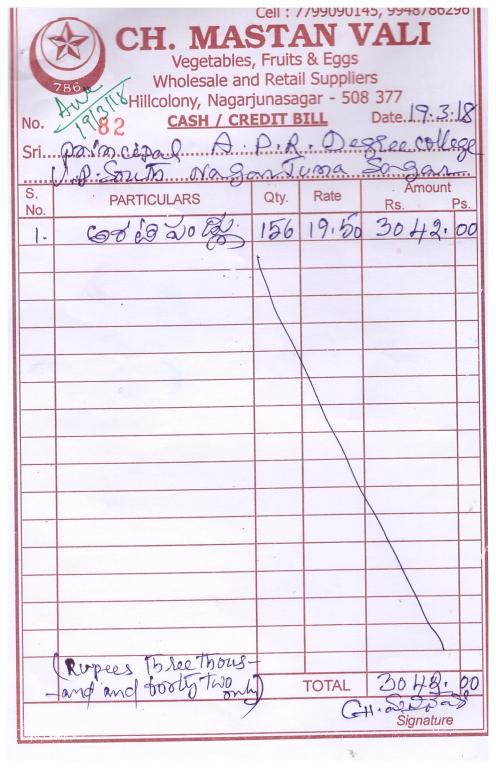 Cell : 7799090145, 9948786296
CH. MASTAN VALI
Vegetables, Fruits & Eggs
Wholesale and Retail Suppliers
Hillcolony, Nagarjunasagar - 508 377
786
19/3/18
No. 82 CASH / CREDIT BILL Date 19.3.18
Sri Principal A.P.R. Degree college
V.P. South Nagarjuna Sagar
S. No. PARTICULARS Qty. Rate Amount Rs. Ps.
1. అరటి పండ్లు 156 19.50 3042.00
(Rupees Three Thous-
-and and forty two only)
TOTAL 3042.00
Signature